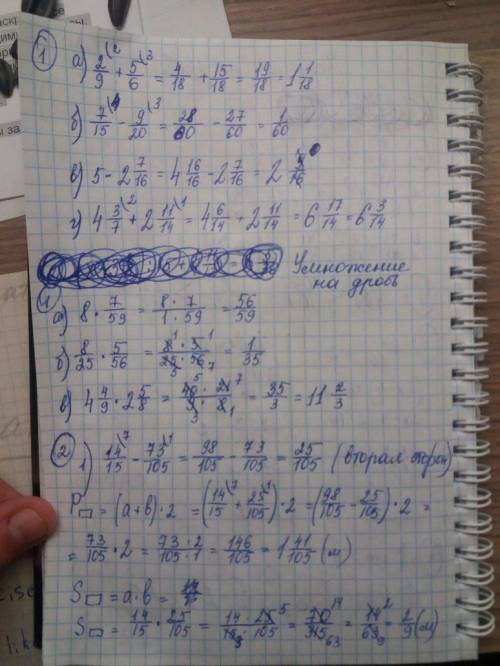 1 а) 2/9 \2 + 5/6 \3 = 4/18 + 15/18 = 19/18 = 1 1/18
б) 7/15 \4 - 9/20 \3 = 28/60 - 27/60 = 1/60
в) 5 - 2 7/16 = 4 16/16 - 2 7/16 = 2
г) 4 3/7 \2 + 2 11/14 \1 = 4 6/14 + 2 11/14 = 6 17/14 = 6 3/14
Умножение
на дробь
1
а) 8 · 7/59 = 8 · 7/1 · 59 = 56/59
б) 8/25 · 5/56 = 8 · 5/25 · 56 = 1/35
в) 4 4/9 · 2 5/8 = 40 · 21/9 · 8 = 35/3 = 11 2/3
2
1) 14/15 \7 - 73/105 \1 = 98/105 - 73/105 = 25/105 (вторая сторон)
P▭ = (a+b) · 2 = (14/15 \7 + 25/105 \1) · 2 = (98/105 - 25/105) · 2 =
= 73/105 · 2 = 73 · 2/105 · 1 = 146/105 = 1 41/105 (м)
S▭ = a · b =
S▭ = 14/15 · 25/105 = 14 · 25/15 · 105 = 70/315 = 14/63 = 2/9 (м)